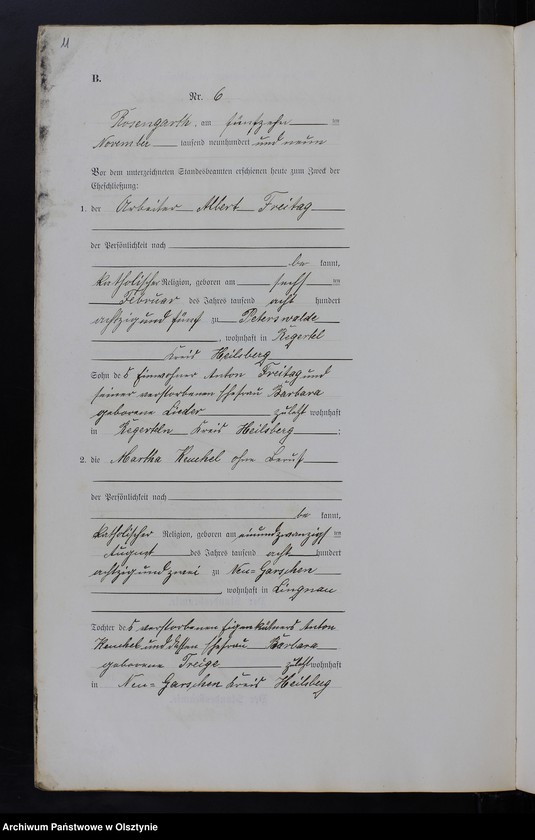 11
B.
Nr. 6
Rosengarth, am fünfzehn ten
November tausend neunhundert und neun
Vor dem unterzeichneten Standesbeamten erschienen heute zum Zweck der
Eheschließung:
1. der Arbeiter Albert Freitag
der Persönlichkeit nach
be kannt,
katholischer Religion, geboren am sechs ten
Februar des Jahres tausend acht hundert
achtzig und fünf zu Peterswalde
, wohnhaft in Regerteln
Kreis Heilsberg
Sohn des Einwohner Anton Freitag und
seiner verstorbenen Ehefrau Barbara
geborene Lieder zuletzt wohnhaft
in Regerteln Kreis Heilsberg ;
2. die Martha Henchel ohne Beruf
der Persönlichkeit nach
be kannt,
katholischer Religion, geboren am einundzwanzigs ten
August des Jahres tausend acht hundert
achtzig und zwei zu Neu-Garschen
, wohnhaft in Lingnau
Tochter des verstorbenen Eigenkätners Anton
Henchel und dessen Ehefrau Barbara
geborene Preige zuletzt wohnhaft
in Neu-Garschen Kreis Heilsberg
Archiwum Państwowe w Olsztynie